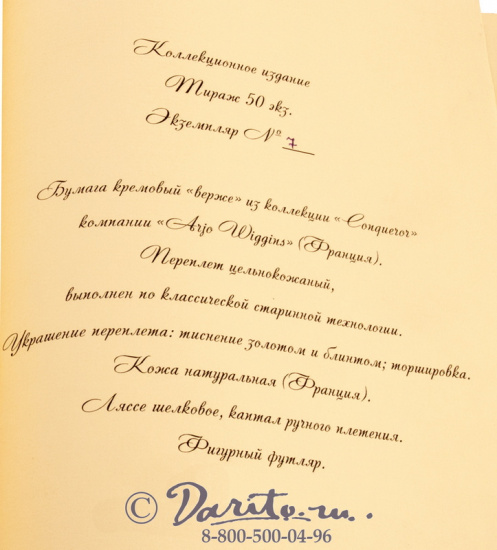 Коллекционное издание
Тираж 50 экз.
Экземпляр № 7
Бумага кремовый «верже» из коллекции «Conqueror»
компании «Arjo Wiggins» (Франция).
Переплет цельнокожаный,
выполнен по классической старинной технологии.
Украшение переплета: тиснение золотом и блинтом; торшировка.
Кожа натуральная (Франция).
Ляссе шелковое, каптал ручного плетения.
Фигурный футляр.
© Darito.ru.
8-800-500-04-96